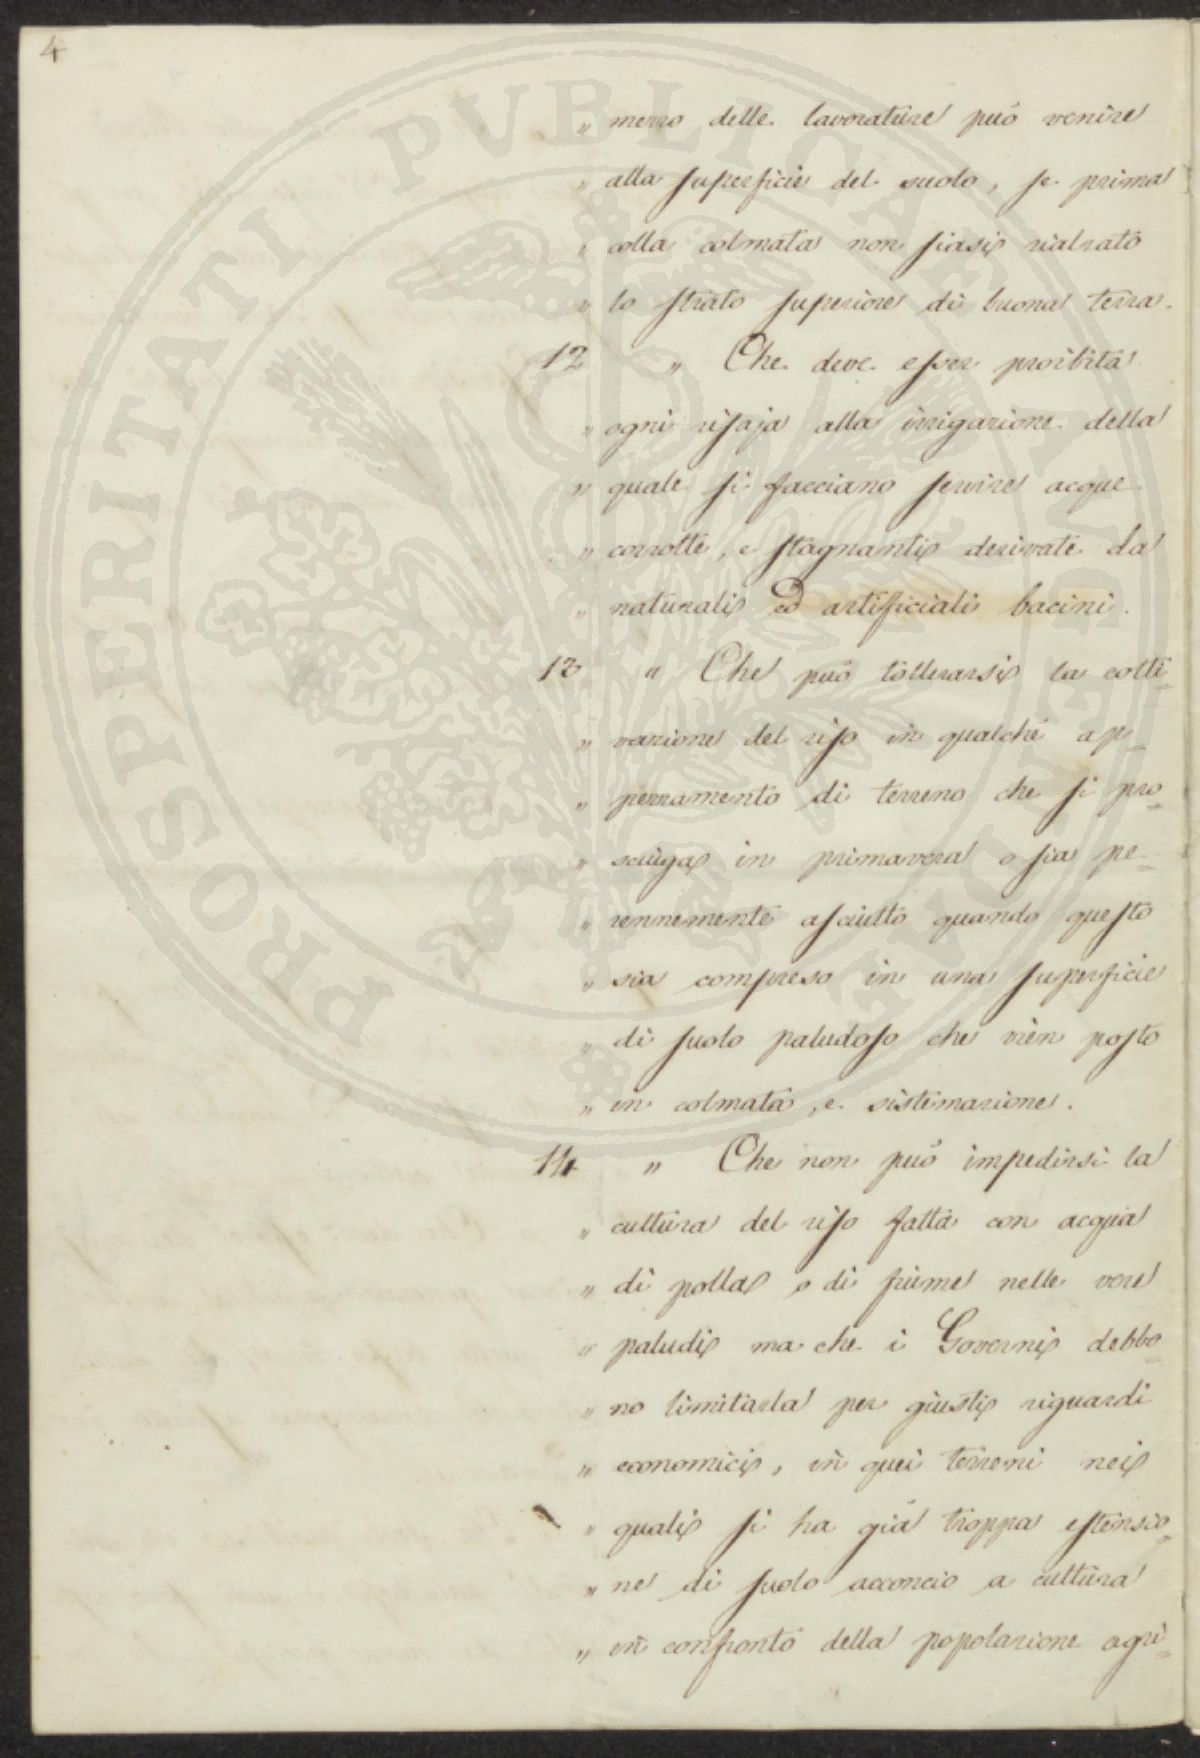 4
„ mezzo delle lavorature può venire
„ alla superficie del suolo, se prima
„ colla colmata non siasi rialzato
„ lo strato superiore di buona terra.
12 „ Che deve esser proibita
„ ogni risaja alla irrigazione della
„ quale si facciano servire acque
„ corrotte, e stagnanti derivate da
„ naturali ed artificiali bacini.
13 „ Che può tollerarsi la colti=
„ vazione del riso in qualche ap=
„ pezzamento di terreno che si pro=
„ sciuga in primavera o sia pe=
„ rennemente asciutto quando questo
„ sia compreso in una superficie
„ di suolo paludoso che vien posto
„ in colmata, e sistemazione.
14 „ Che non può impedirsi la
„ cultura del riso fatta con acqua
„ di polla o di fiume nelle vere
„ paludi ma che i Governi debbo=
„ no limitarla per giusti riguardi
„ economici, in quei terreni nei
„ quali si ha già troppa estensio=
„ ne di suolo acconcio a cultura
„ in confronto della popolazione agri=
PROSPERITATI PVBLICAE AVGENDAE